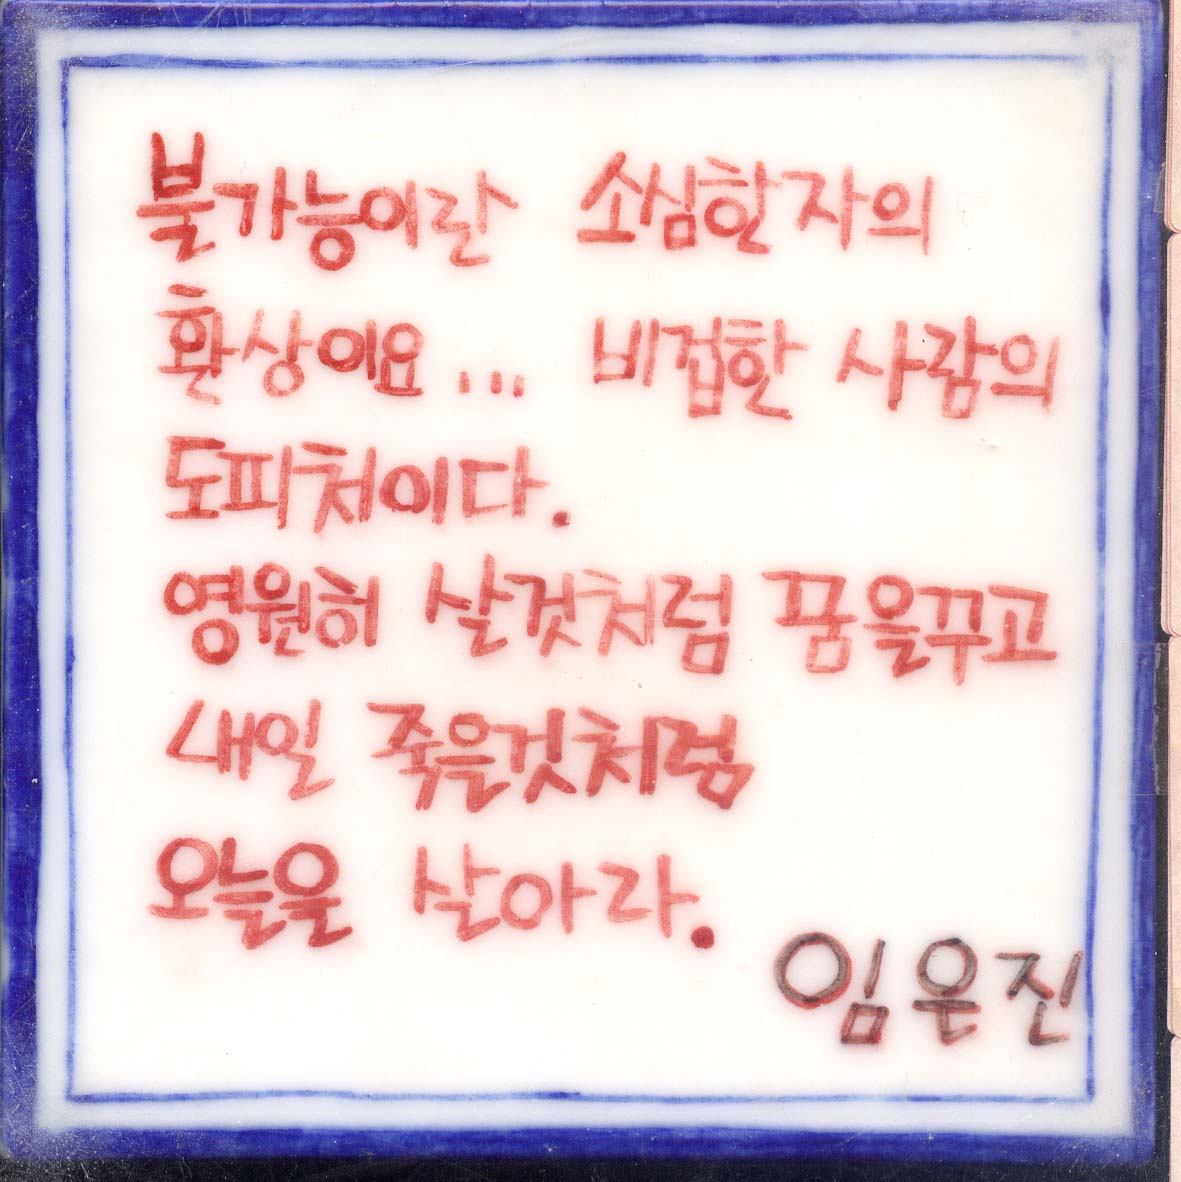 불가능이란 소심한자의
환상이요... 비겁한 사람의
도피처이다.
영원히 살것처럼 꿈을꾸고
내일 죽을것처럼
오늘을 살아라.
임은진